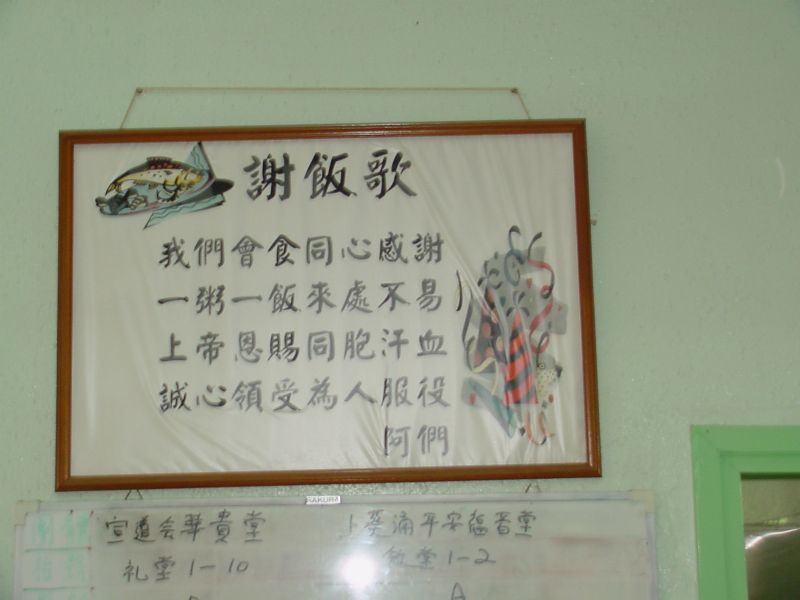 謝飯歌
我們會食同心感謝
一粥一飯來處不易
上帝恩賜同胞汗血
誠心領受為人服役
阿們
SAKURA
宣道会華貴堂
上葵涌平安福音堂
礼堂 1-10
1-2
A